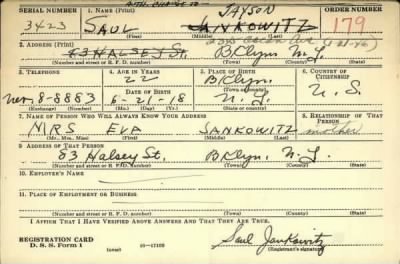 NAME CHANGE TO - JAYSON
SERIAL NUMBER 1. NAME (Print) ORDER NUMBER
3423 SAUL JANKOWITZ 179
(First) (Middle) (Last)
2. ADDRESS (Print)
83 HALSEY St. BKlyn N.Y.
(Number and street or R. F. D. number) (Town) (County) (State)
3. TELEPHONE 4. AGE IN YEARS 5. PLACE OF BIRTH 6. COUNTRY OF CITIZENSHIP
22 BKlyn.
(Town or county)
8-8883 DATE OF BIRTH N.Y. U.S.
6-21-18
(Exchange) (Number) (Mo.) (Day) (Yr.) (State or country)
7. NAME OF PERSON WHO WILL ALWAYS KNOW YOUR ADDRESS 8. RELATIONSHIP OF THAT PERSON
MRS EVA JANKOWITZ mother
(Mr., Mrs., Miss) (First) (Middle) (Last)
9. ADDRESS OF THAT PERSON
83 Halsey St. BKlyn. N.Y.
(Number and street or R. F. D. number) (Town) (County) (State)
10. EMPLOYER'S NAME
11. PLACE OF EMPLOYMENT OR BUSINESS
(Number and street or R. F. D. number) (Town) (County) (State)
I AFFIRM THAT I HAVE VERIFIED ABOVE ANSWERS AND THAT THEY ARE TRUE.
REGISTRATION CARD
D. S. S. Form 1 (over) 16-17105 Saul Jankowitz
(Registrant's signature)